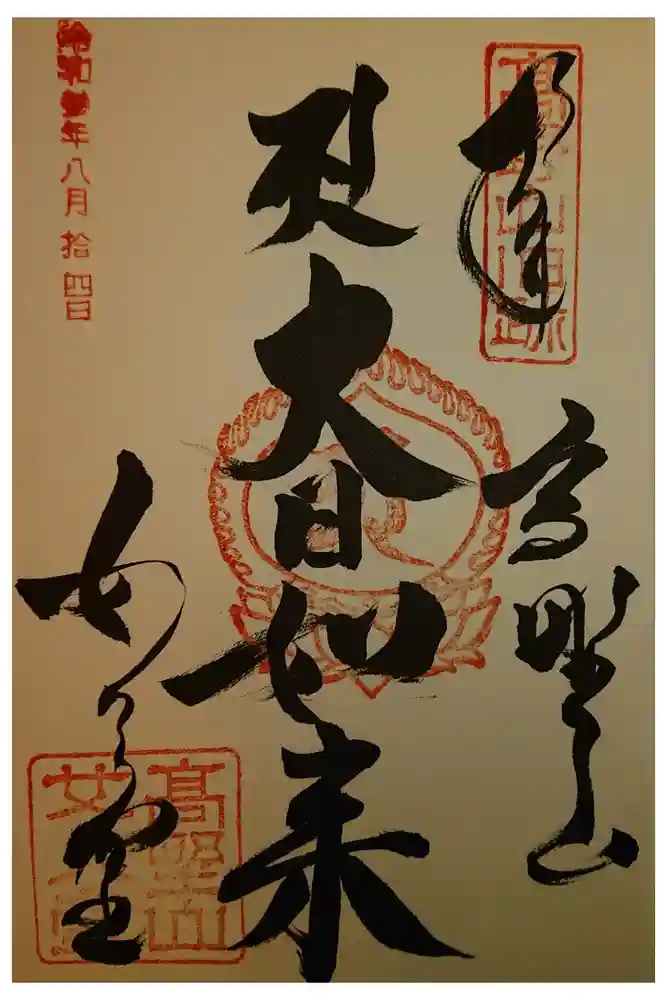 奉拝
高野山
大日如来
女人堂
令和年八月拾四日
高野山旧跡
高野山
女人堂